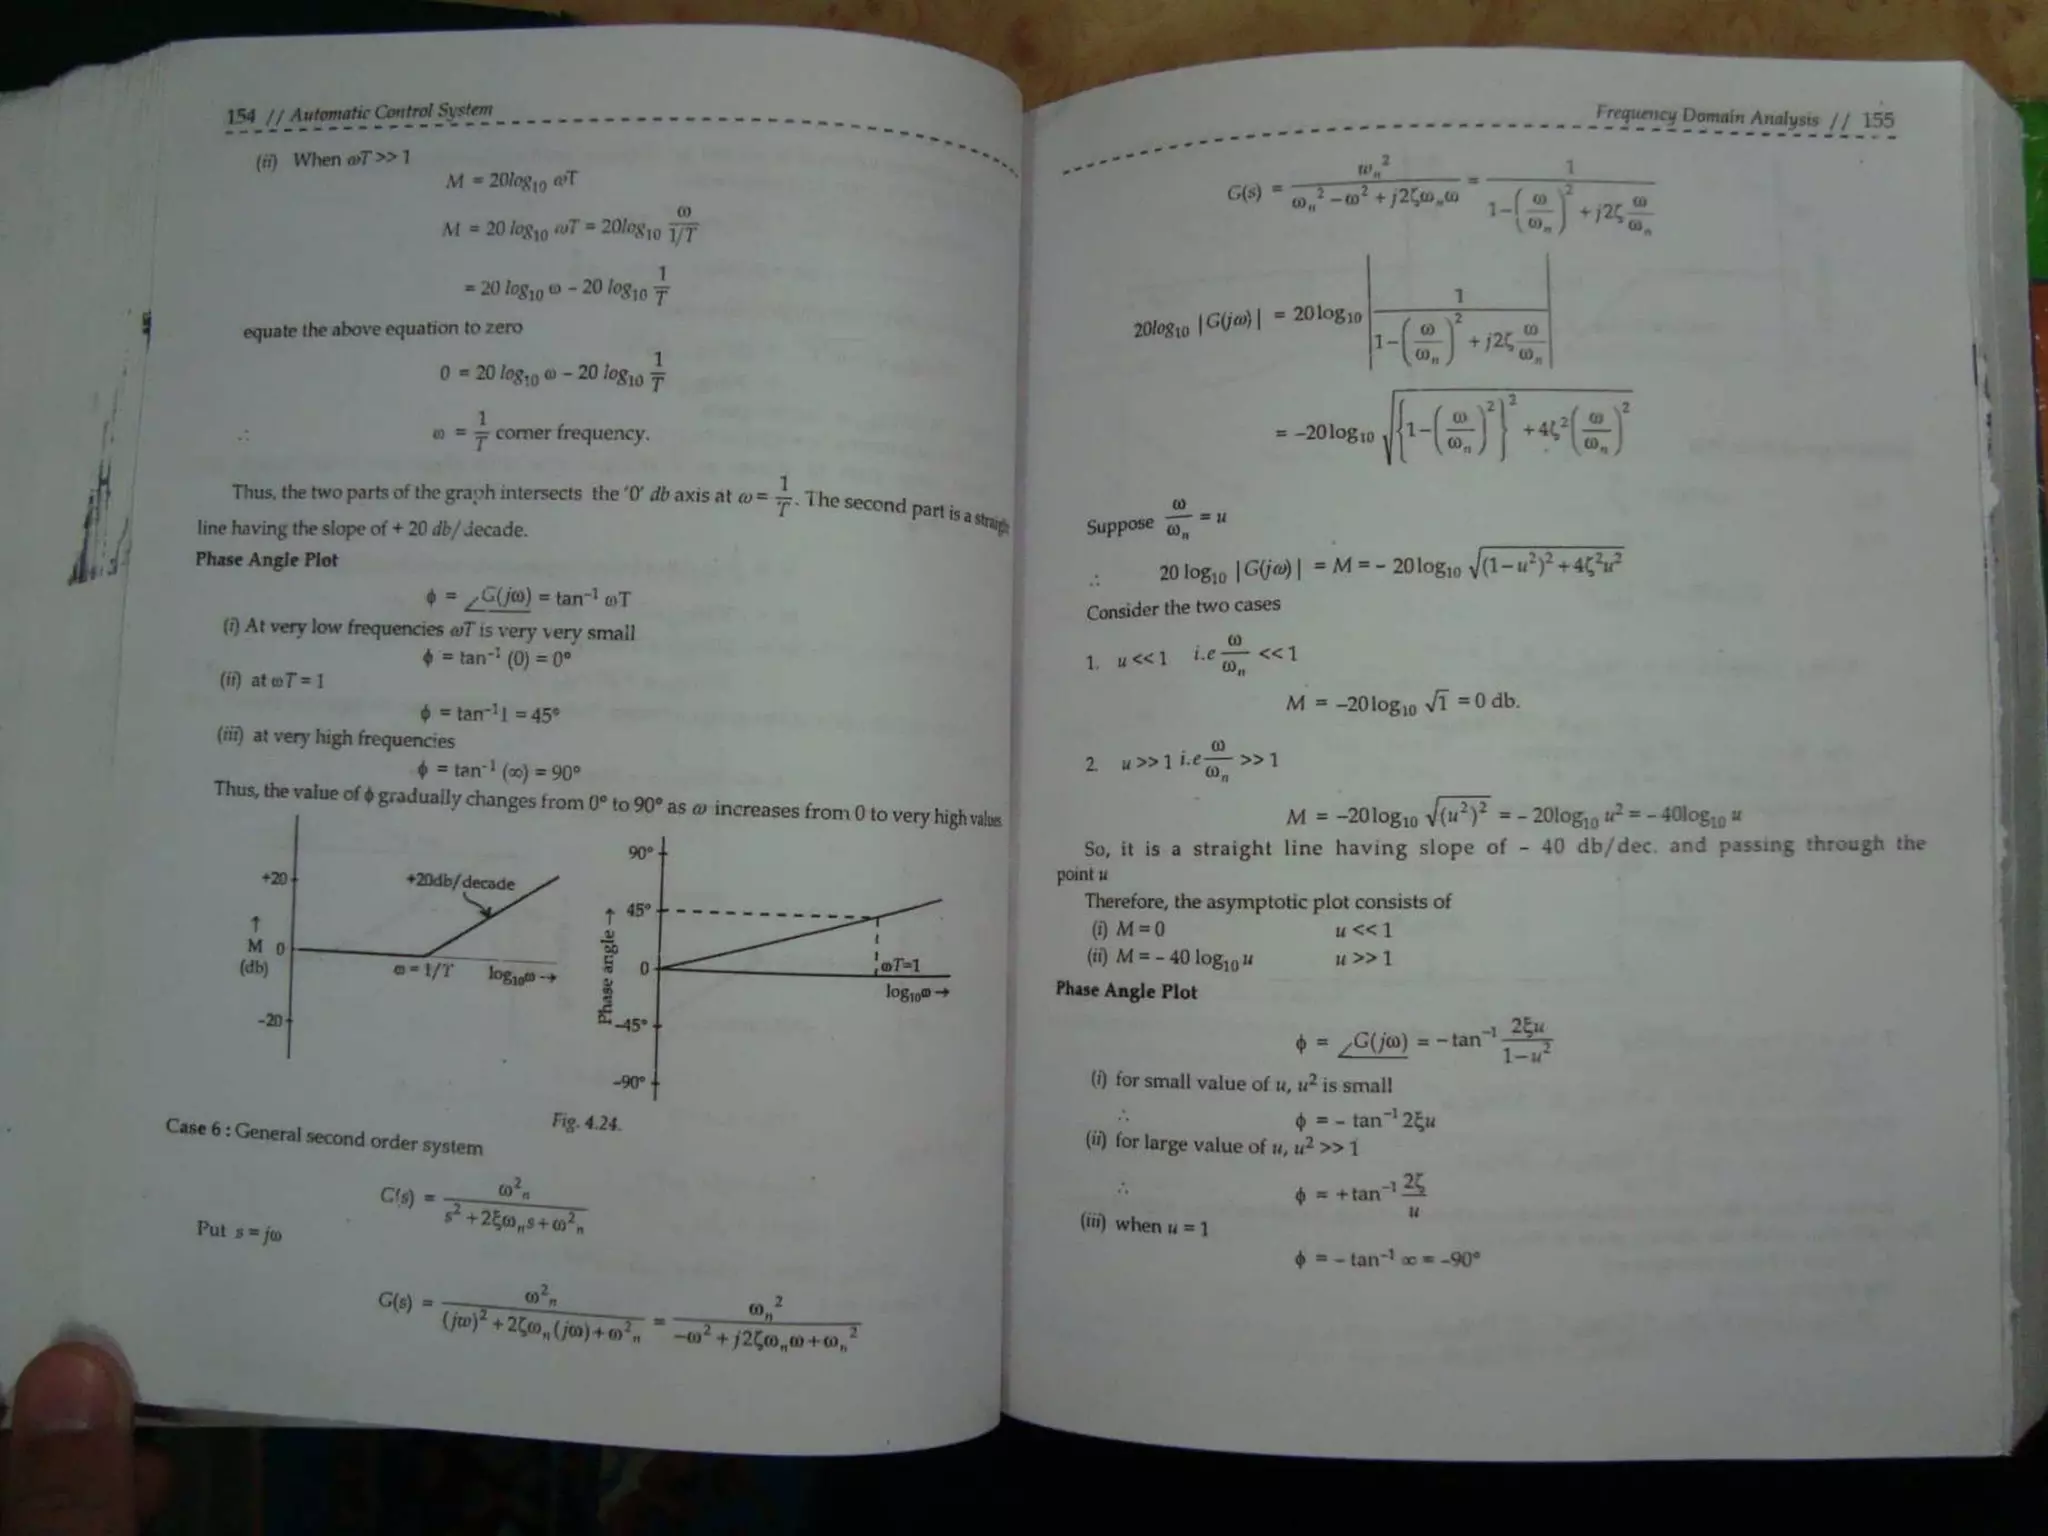 154 // Automatic Control System
(ii) When ωT >> 1
M = 20log₁₀ ωT
M = 20 log₁₀ ωT = 20log₁₀ ω/(1/T)
= 20 log₁₀ ω – 20 log₁₀ 1/T
equate the above equation to zero
0 = 20 log₁₀ ω – 20 log₁₀ 1/T
∴ ω = 1/T corner frequency.
Thus, the two parts of the graph intersects the '0' db axis at ω = 1/T. The second part is a straight
line having the slope of + 20 db/decade.
Phase Angle Plot
ϕ = ∠G(jω) = tan⁻¹ ωT
(i) At very low frequencies ωT is very very small
ϕ = tan⁻¹ (0) = 0°
(ii) at ωT = 1
ϕ = tan⁻¹1 = 45°
(iii) at very high frequencies
ϕ = tan⁻¹ (∞) = 90°
Thus, the value of ϕ gradually changes from 0° to 90° as ω increases from 0 to very high values
+20
+20db/decade
↑
M 0
(db)
ω = 1/T log₁₀ω →
-20
90°
45°
Phase angle →
0
ωT=1
log₁₀ω →
-45°
-90°
Fig. 4.24.
Case 6 : General second order system
C(s) = ω²ₙ/(s² + 2ξωₙs + ω²ₙ)
Put s = jω
G(s) = ω²ₙ/((jw)² + 2ζωₙ(jω) + ω²ₙ) = ωₙ²/(–ω² + j2ζωₙω + ωₙ²)
Frequency Domain Analysis // 155
G(s) = wₙ²/(ωₙ² – ω² + j2ζωₙω) = 1/(1–(ω/ωₙ)² + j2ζ ω/ωₙ)
20log₁₀ |G(jω)| = 20log₁₀ |1/(1–(ω/ωₙ)² + j2ζ ω/ωₙ)|
= –20log₁₀ √({1–(ω/ωₙ)²}² + 4ζ²(ω/ωₙ)²)
Suppose ω/ωₙ = u
∴ 20 log₁₀ |G(jω)| = M = – 20log₁₀ √((1–u²)² + 4ζ²u²)
Consider the two cases
1. u << 1 i.e ω/ωₙ << 1
M = –20log₁₀ √1 = 0 db.
2. u >> 1 i.e ω/ωₙ >> 1
M = –20log₁₀ √(u²)² = – 20log₁₀ u² = – 40log₁₀ u
So, it is a straight line having slope of – 40 db/dec. and passing through the
point u
Therefore, the asymptotic plot consists of
(i) M = 0 u << 1
(ii) M = – 40 log₁₀ u u >> 1
Phase Angle Plot
ϕ = ∠G(jω) = – tan⁻¹ 2ξu/(1–u²)
(i) for small value of u, u² is small
∴ ϕ = – tan⁻¹ 2ξu
(ii) for large value of u, u² >> 1
∴ ϕ = + tan⁻¹ 2ζ/u
(iii) when u = 1
ϕ = – tan⁻¹ ∞ = –90°